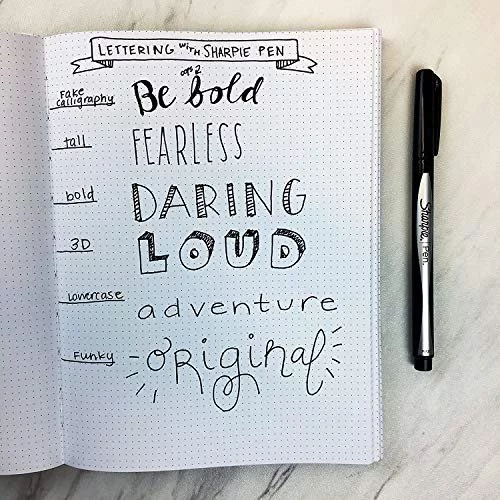 LETTERING with SHARPIE PEN
Fake calligraphy
Be bold
tall
FEARLESS
bold
DARING
3D
LOUD
lowercase
adventure
Funky
ORiginal
Sharpie PEN